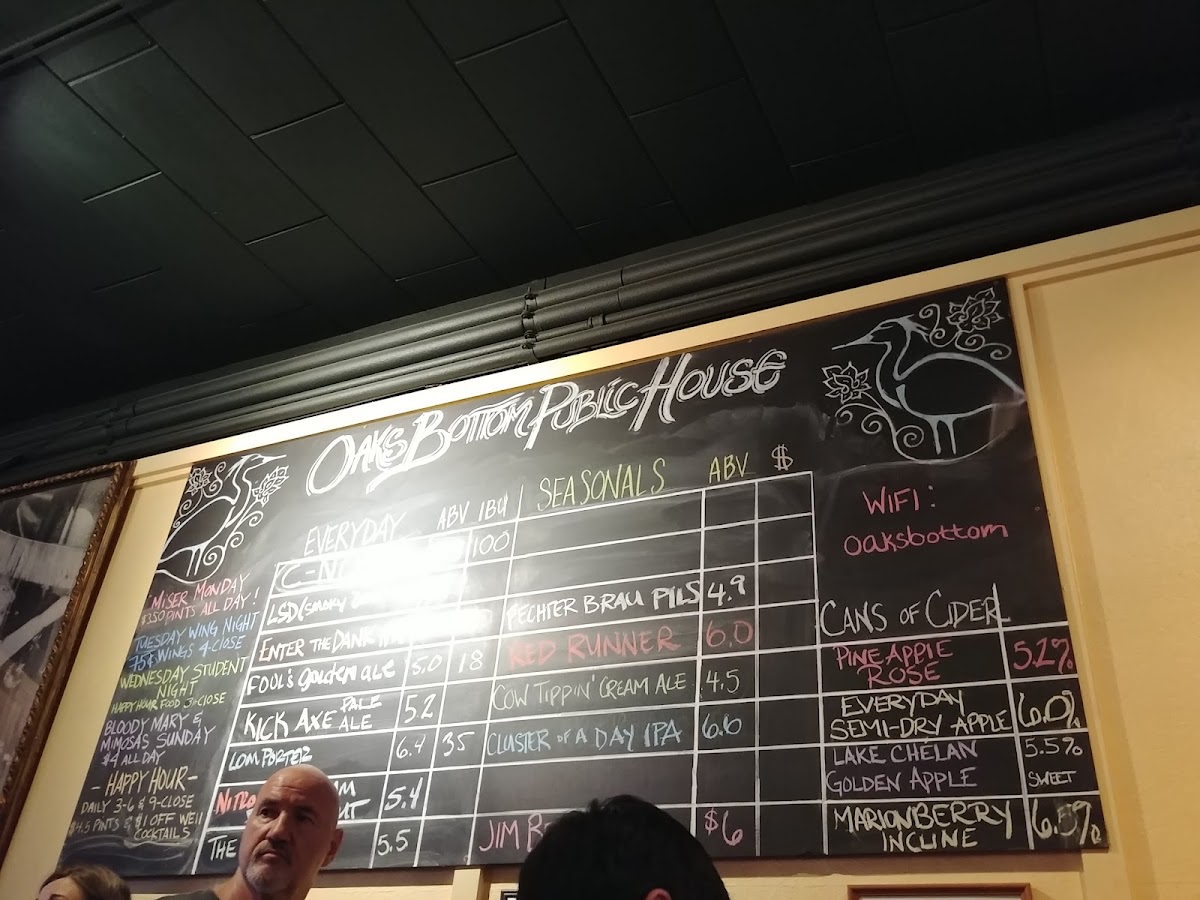 OAKS BOTTOM PUBLIC HOUSE
MISER MONDAY
$3.50 PINTS ALL DAY!
TUESDAY WING NIGHT
75¢ WINGS 4-CLOSE
WEDNESDAY STUDENT
NIGHT
HAPPY HOUR FOOD 3-CLOSE
BLOODY MARY &
MIMOSAS SUNDAY
$4 ALL DAY
- HAPPY HOUR -
DAILY 3-6 & 9-CLOSE
$4.5 PINTS & $1 OFF WELL
COCKTAILS
EVERYDAY ABV IBU
100
LSD (SMOKY
ENTER THE DANK
FOUL'S GOLDEN ALE 5.0 18
KICK AXE PALE ALE 5.2
LOM PORTER 6.4 35
NITRO 5.4
THE 5.5
SEASONALS ABV $
FECHTER BRAU PILS 4.9
RED RUNNER 6.0
COW TIPPIN' CREAM ALE 4.5
CLUSTER OF A DAY IPA 6.6
JIM $6
WIFI:
oaksbottom
CANS OF CIDER
PINEAPPLE
ROSE 5.2%
EVERYDAY
SEMI-DRY APPLE 6.0%
LAKE CHELAN 5.5%
GOLDEN APPLE SWEET
MARIONBERRY
INCLINE 6.5%